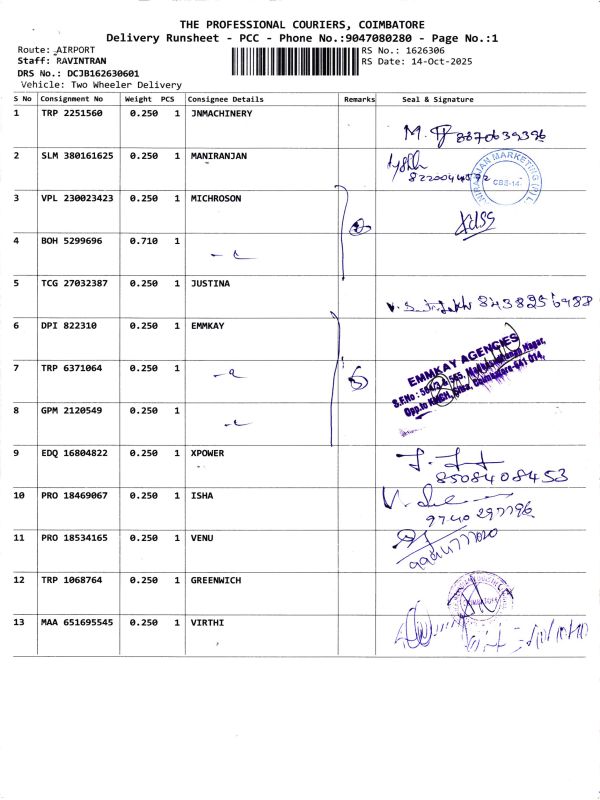 THE PROFESSIONAL COURIERS, COIMBATORE
Delivery Runsheet - PCC - Phone No.:9047080280 - Page No.:1
Route: AIRPORT RS No.: 1626306
Staff: RAVINTRAN RS Date: 14-Oct-2025
DRS No.: DCJB162630601
Vehicle: Two Wheeler Delivery
S No Consignment No Weight PCS Consignee Details Remarks Seal & Signature
1 TRP 2251560 0.250 1 JNMACHINERY
8870639396
2 SLM 380161625 0.250 1 MANIRANJAN
CBE-14
3 VPL 230023423 0.250 1 MICHROSON
4 BOH 5299696 0.710 1
5 TCG 27032387 0.250 1 JUSTINA
8438256988
6 DPI 822310 0.250 1 EMMKAY
EMMKAY AGENCIES
7 TRP 6371064 0.250 1
8 GPM 2120549 0.250 1
9 EDQ 16804822 0.250 1 XPOWER
8508408453
10 PRO 18469067 0.250 1 ISHA
9740297796
11 PRO 18534165 0.250 1 VENU
12 TRP 1068764 0.250 1 GREENWICH
13 MAA 651695545 0.250 1 VIRTHI